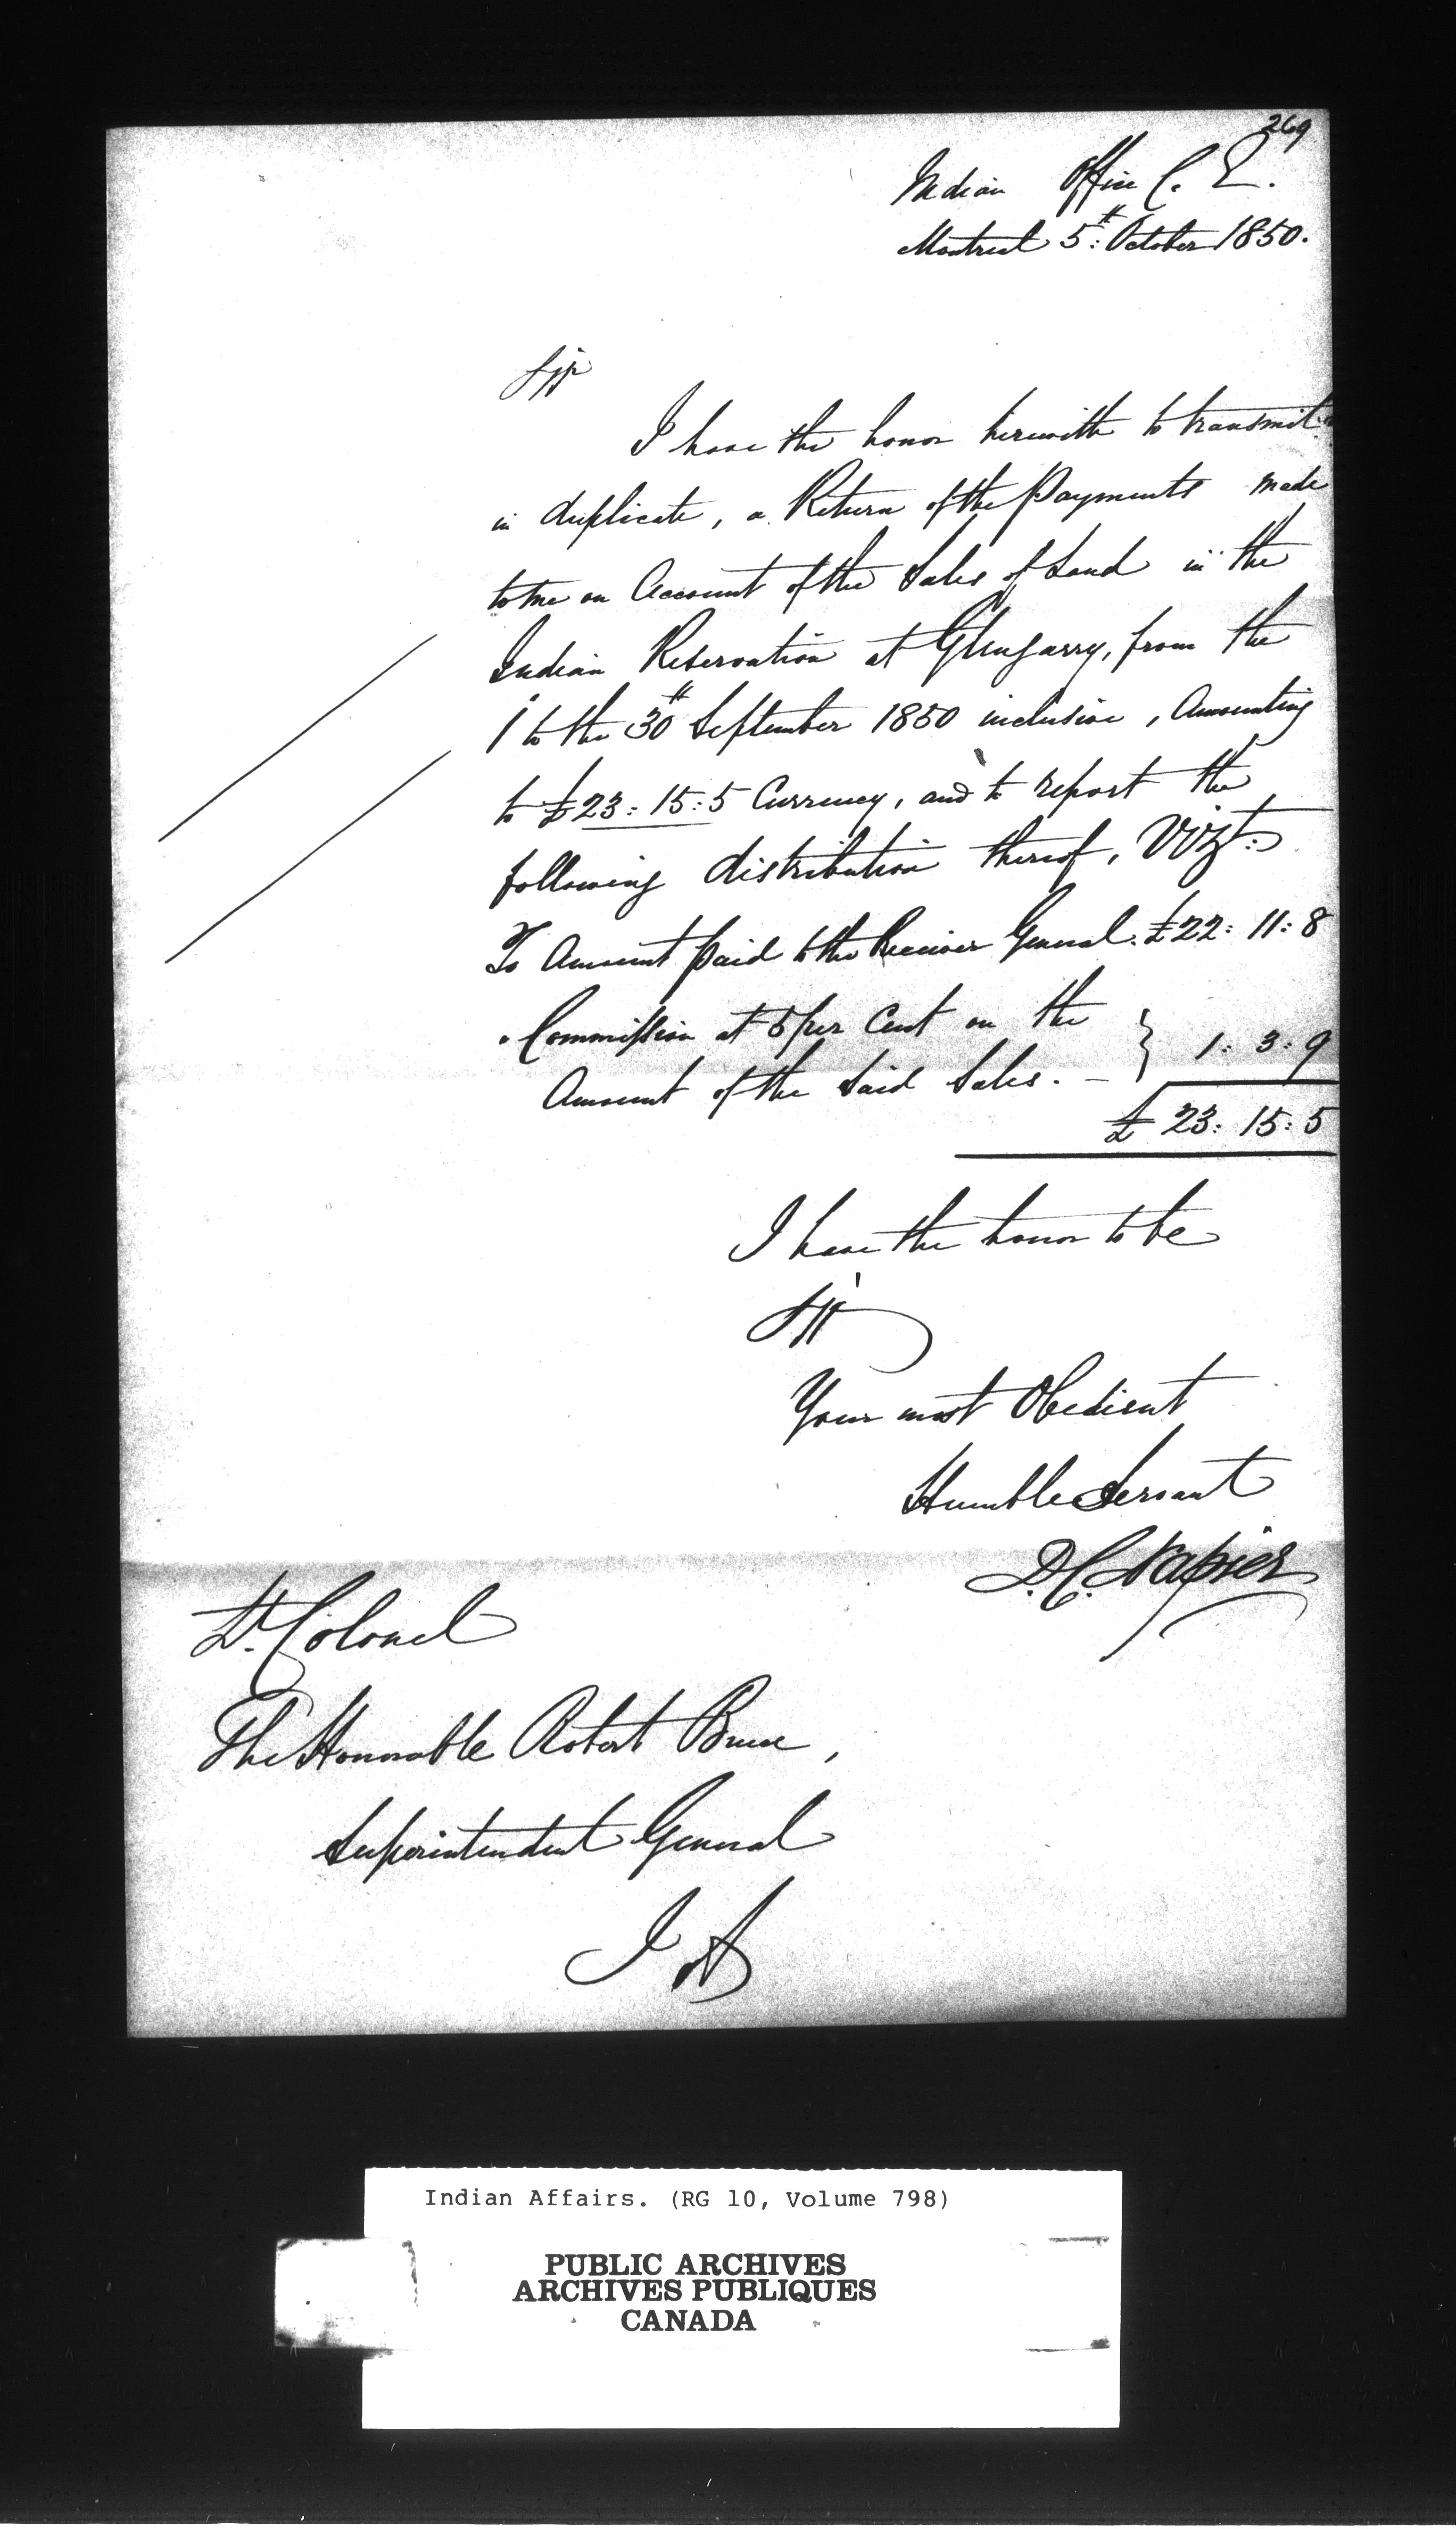 269
Indian Office C. E.
Montreal 5th: October 1850.
Sir
I have the honor herewith to transmit
in duplicate, a Return of the Payments made
to me on Account of the Sales of Land in the
Indian Reservation at Glengarry, from the
1 to the 30th September 1850 inclusive, Amounting
to £23: 15: 5 Currency, and to report the
following distribution thereof, Vizt:
To Amount paid to the Receiver General. £22: 11: 8
" Commission at 5 per Cent on the } 1: 3: 9
Amount of the Said Sales. —
£ 23: 15: 5
I have the honor to be
Sir
Your most Obedient
Humble Servant
D.C. Napier
Lt. Colonel
The Honorable Robert Bruce,
Superintendent General
I A
Indian Affairs. (RG 10, Volume 798)
PUBLIC ARCHIVES
ARCHIVES PUBLIQUES
CANADA